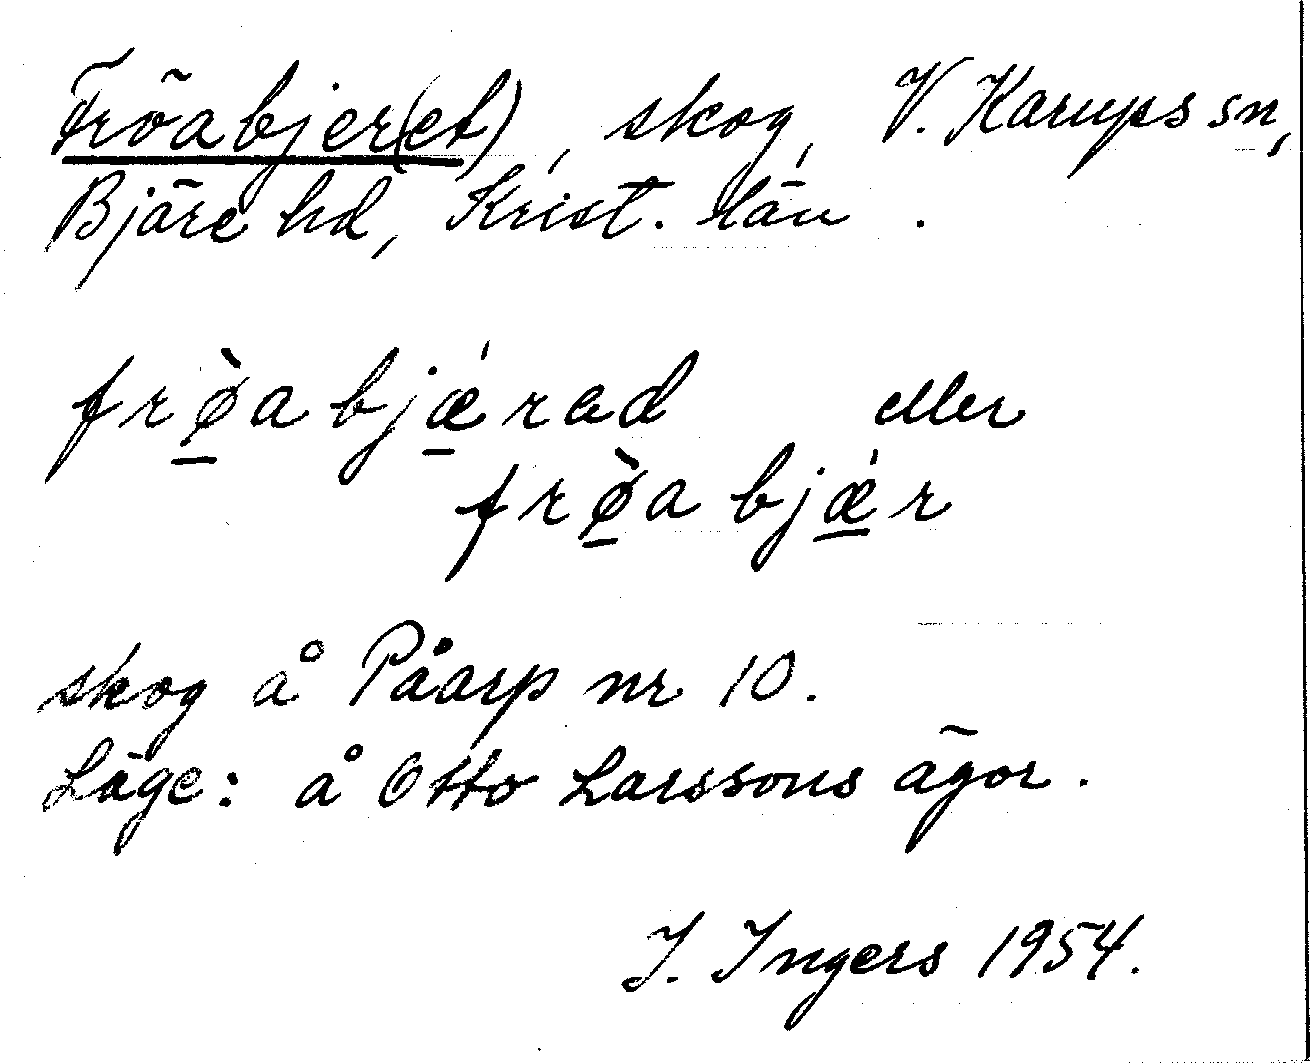 Fröabjer(et), skog, V. Karups sn,
Bjäre hd, Krist. län.
frø̱̀abjǽ̱rad eller
frø̱̀abjǽ̱r
skog å Påarp nr 10.
Läge: å Otto Larssons ägor.
I. Ingers 1954.